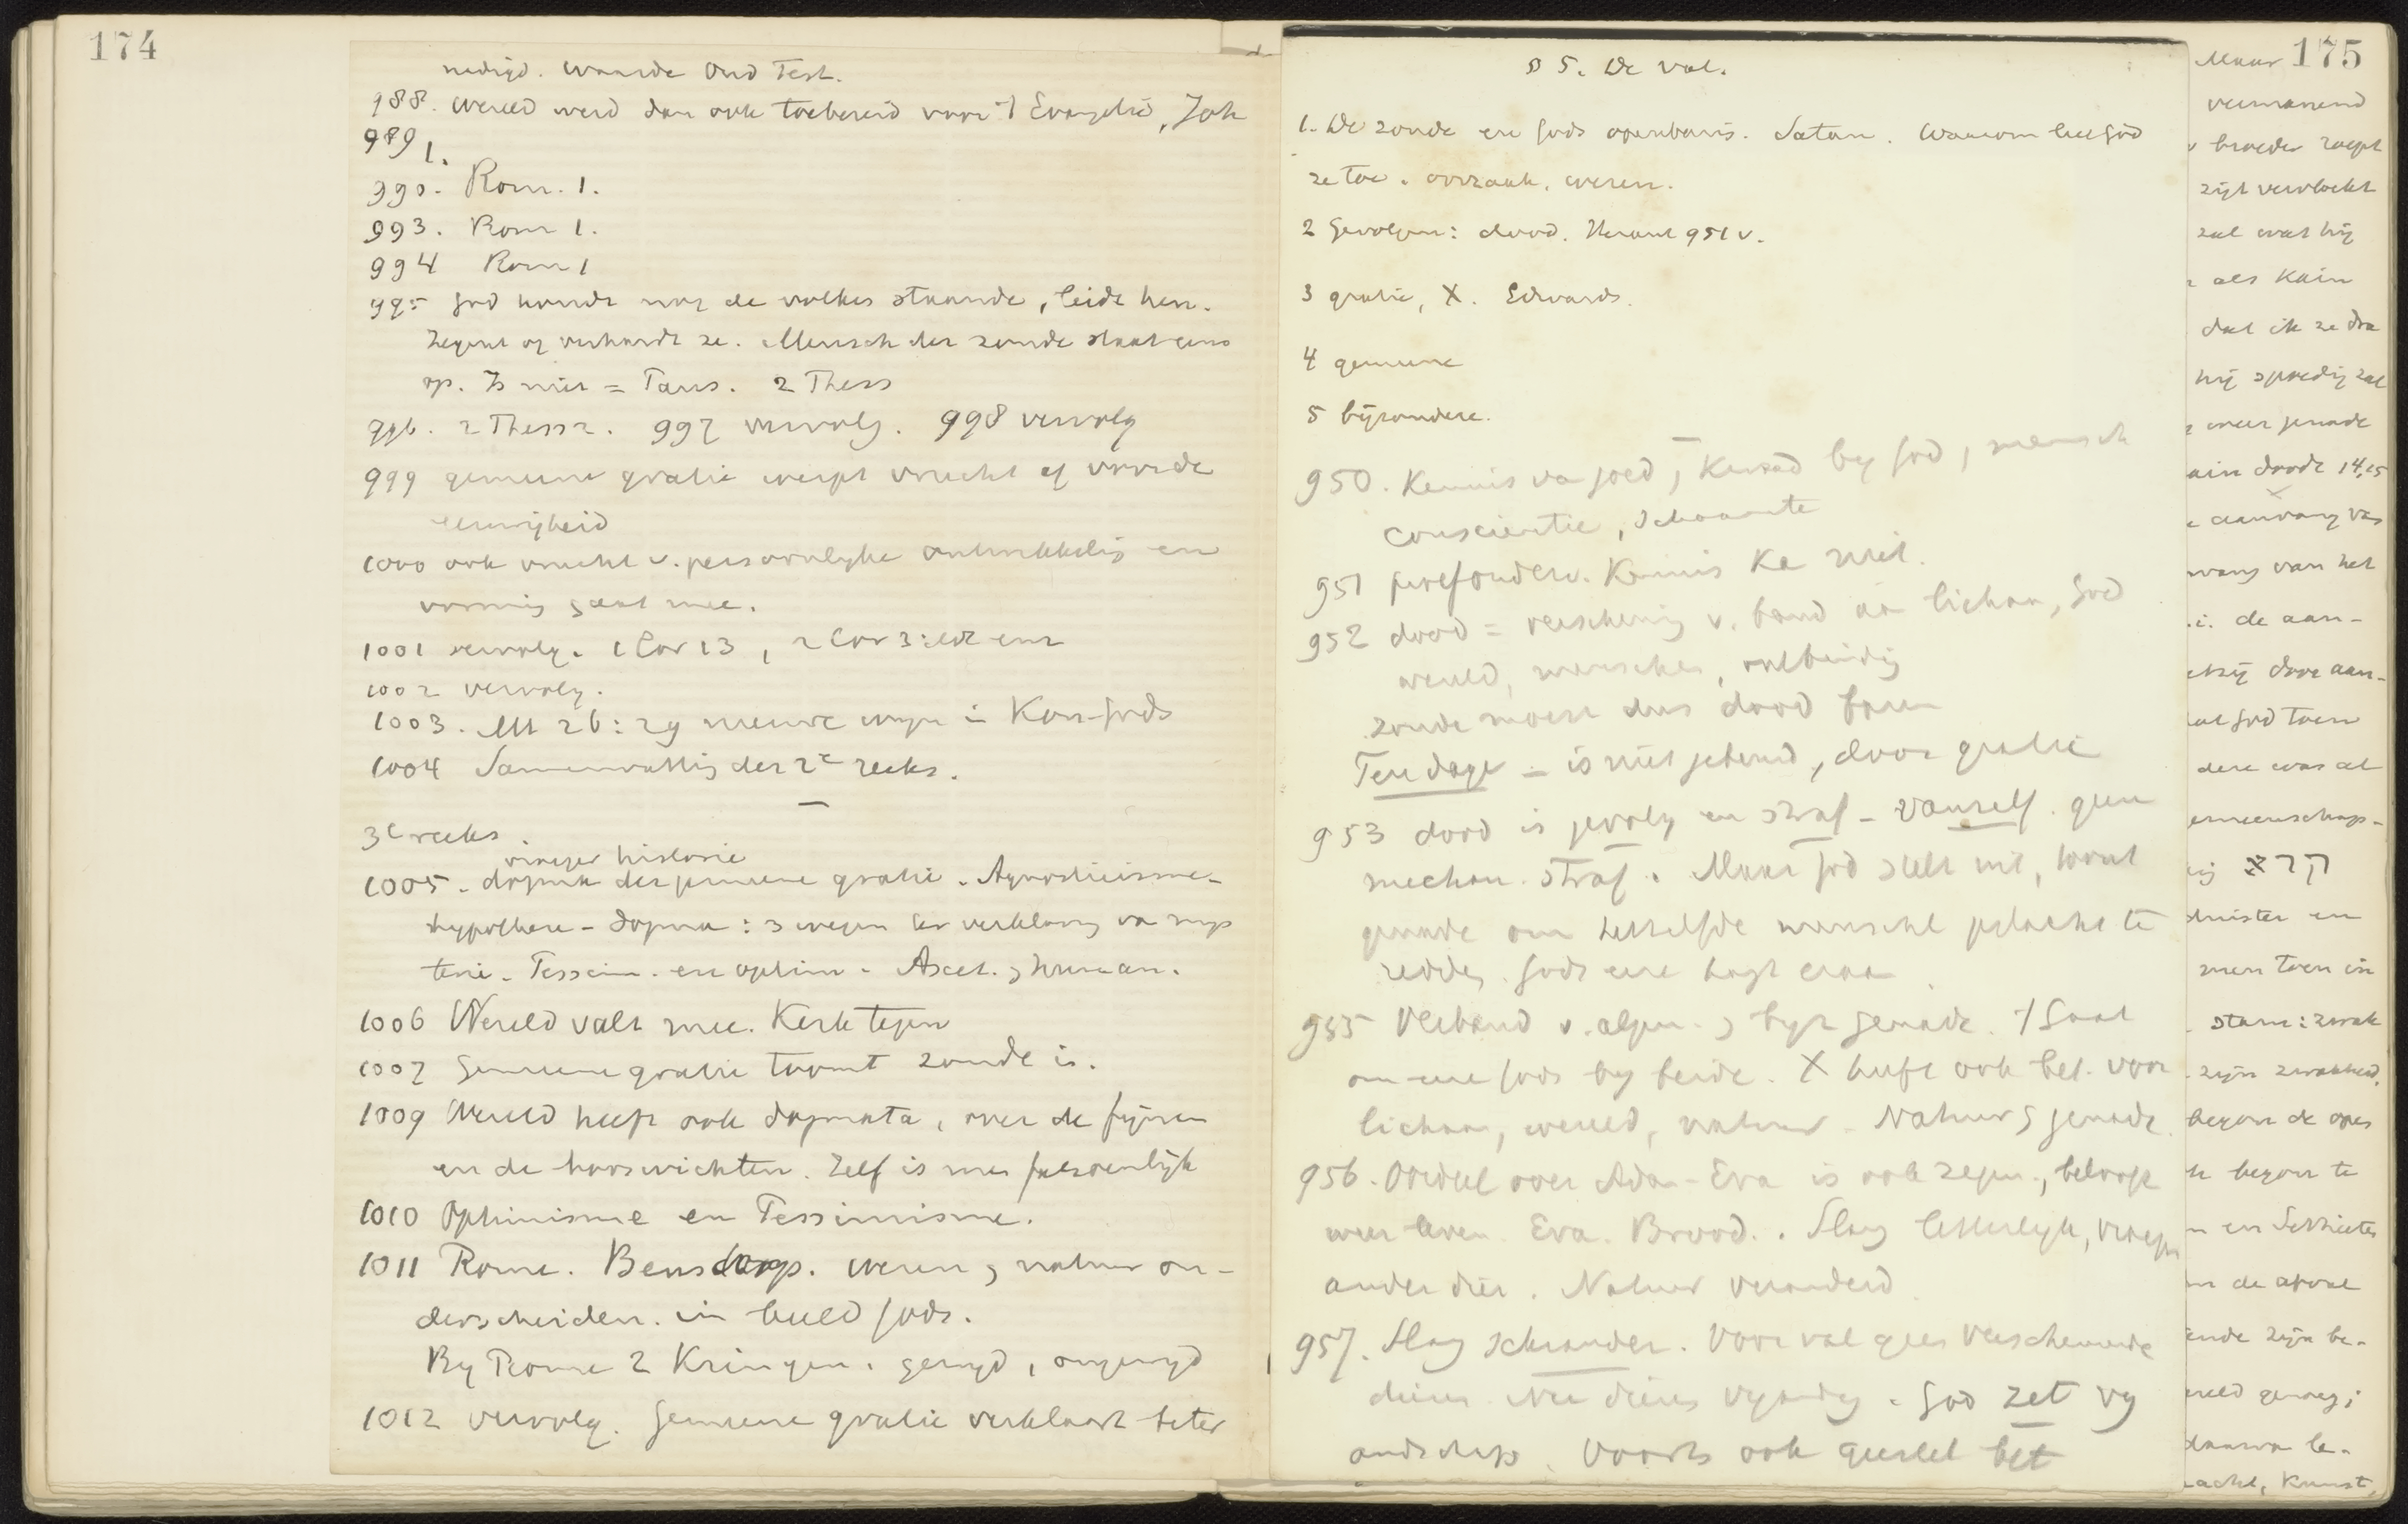 174
Waarde Oud Test.
988. Wereld werd dan ook toebereid voor 't Evangelie, Joh
989 1.
990. Rom. 1.
993. Rom 1.
994 Rom 1
995 God houdt nog de volken staande, leidt hen.
Zegent of verhardt ze. Mensch der zonde staat eens
op. Is niet = Paus. 2 Thess
996. 2 Thess 2. 997 vervolg. 998 vervolg
999 gemeene gratie werpt vrucht af voor de
eeuwigheid
1000 ook vrucht v. persoonlyke ontwikkeling en
vorming gaat mee.
1001 vervolg. 1 Cor 13, 2 Cor 3:
1002 vervolg.
1003. Mt 26:29 nieuwe wyn in Kon. Gods
1004 Samenvatting der 2e reeks.
3e reeks.
vroeger historie
1005. dogma der gemeene gratie. Agnosticisme-
hypothese - dogma: 3 wegen ter verklaring va mys
terie. Pessim. en optim. Ascet. & human.
1006 Wereld valt mee. Kerk tegen
1007 Gemeene gratie toomt zonde in.
1009 Wereld heeft ook dogmata, over de fijnen
en de booswichten. Zelf is men fatsoenlijk
1010 Optimisme en Pessimisme.
1011 Rome. Bensdorp. Wezen & natuur on-
derscheiden. in beeld Gods.
By Rome 2 Kringen. gewyd, ongewyd
1012 vervolg. Gemeene gratie verklaart beter
§ 5. De val.
1. De zonde en Gods openbaring. Satan. Waarom liet God
ze toe. oorzaak, wezen.
2 Gevolgen: dood. Heraut 951 v.
3 gratie, X. Edwards.
4 gemeene
5 bijzondere.
950. Kennis va goed & kwaad by God, mensch
conscientie, schaamte
951 Kennis
952 dood = verscheuring v. band aan lichaam, God
wereld, menschen, ontbinding
zonde moest dus dood baren
Ten dage - is niet gebeurd, door gratie
953 dood is gevolg en straf - vanzelf. geen
mechan. straf. Maar God stelt uit, toont
genade om hetzelfde menschel. geslacht te
redden. Gods eer hangt eraan
955 Verband v. algem. & byz genade. 't Gaat
om eere Gods by beide. X heeft ook bet. voor
lichaam, wereld, natuur. Natuur & genade.
956. Oordeel over Adam - Eva is ook zegen, belooft
weer leven. Eva. Brood. Slang letterlyk, vroeger
ander dier. Natuur veranderd
957. Slang schrander. Voor val geen verscheurende
dieren. Nu dieren vyandig. God zet vy
andschap. Voorts ook geestel bet
175
Maar
vermanend
broeder roept
zijt vervloekt
zal wat hij
als Kain
dat ik ze dra
hij spoedig zal
weer genade
ain doodt 14, 15
aanvang van
van het
i. de aan-
door aan-
God toen
dere was al
emeenschaps-
duister en
men toen in
stam: zwak
zijn zwakheid,
begon de
begon te
en
de
zijn be-
genoeg;
daarva be-
acht, Kunst,